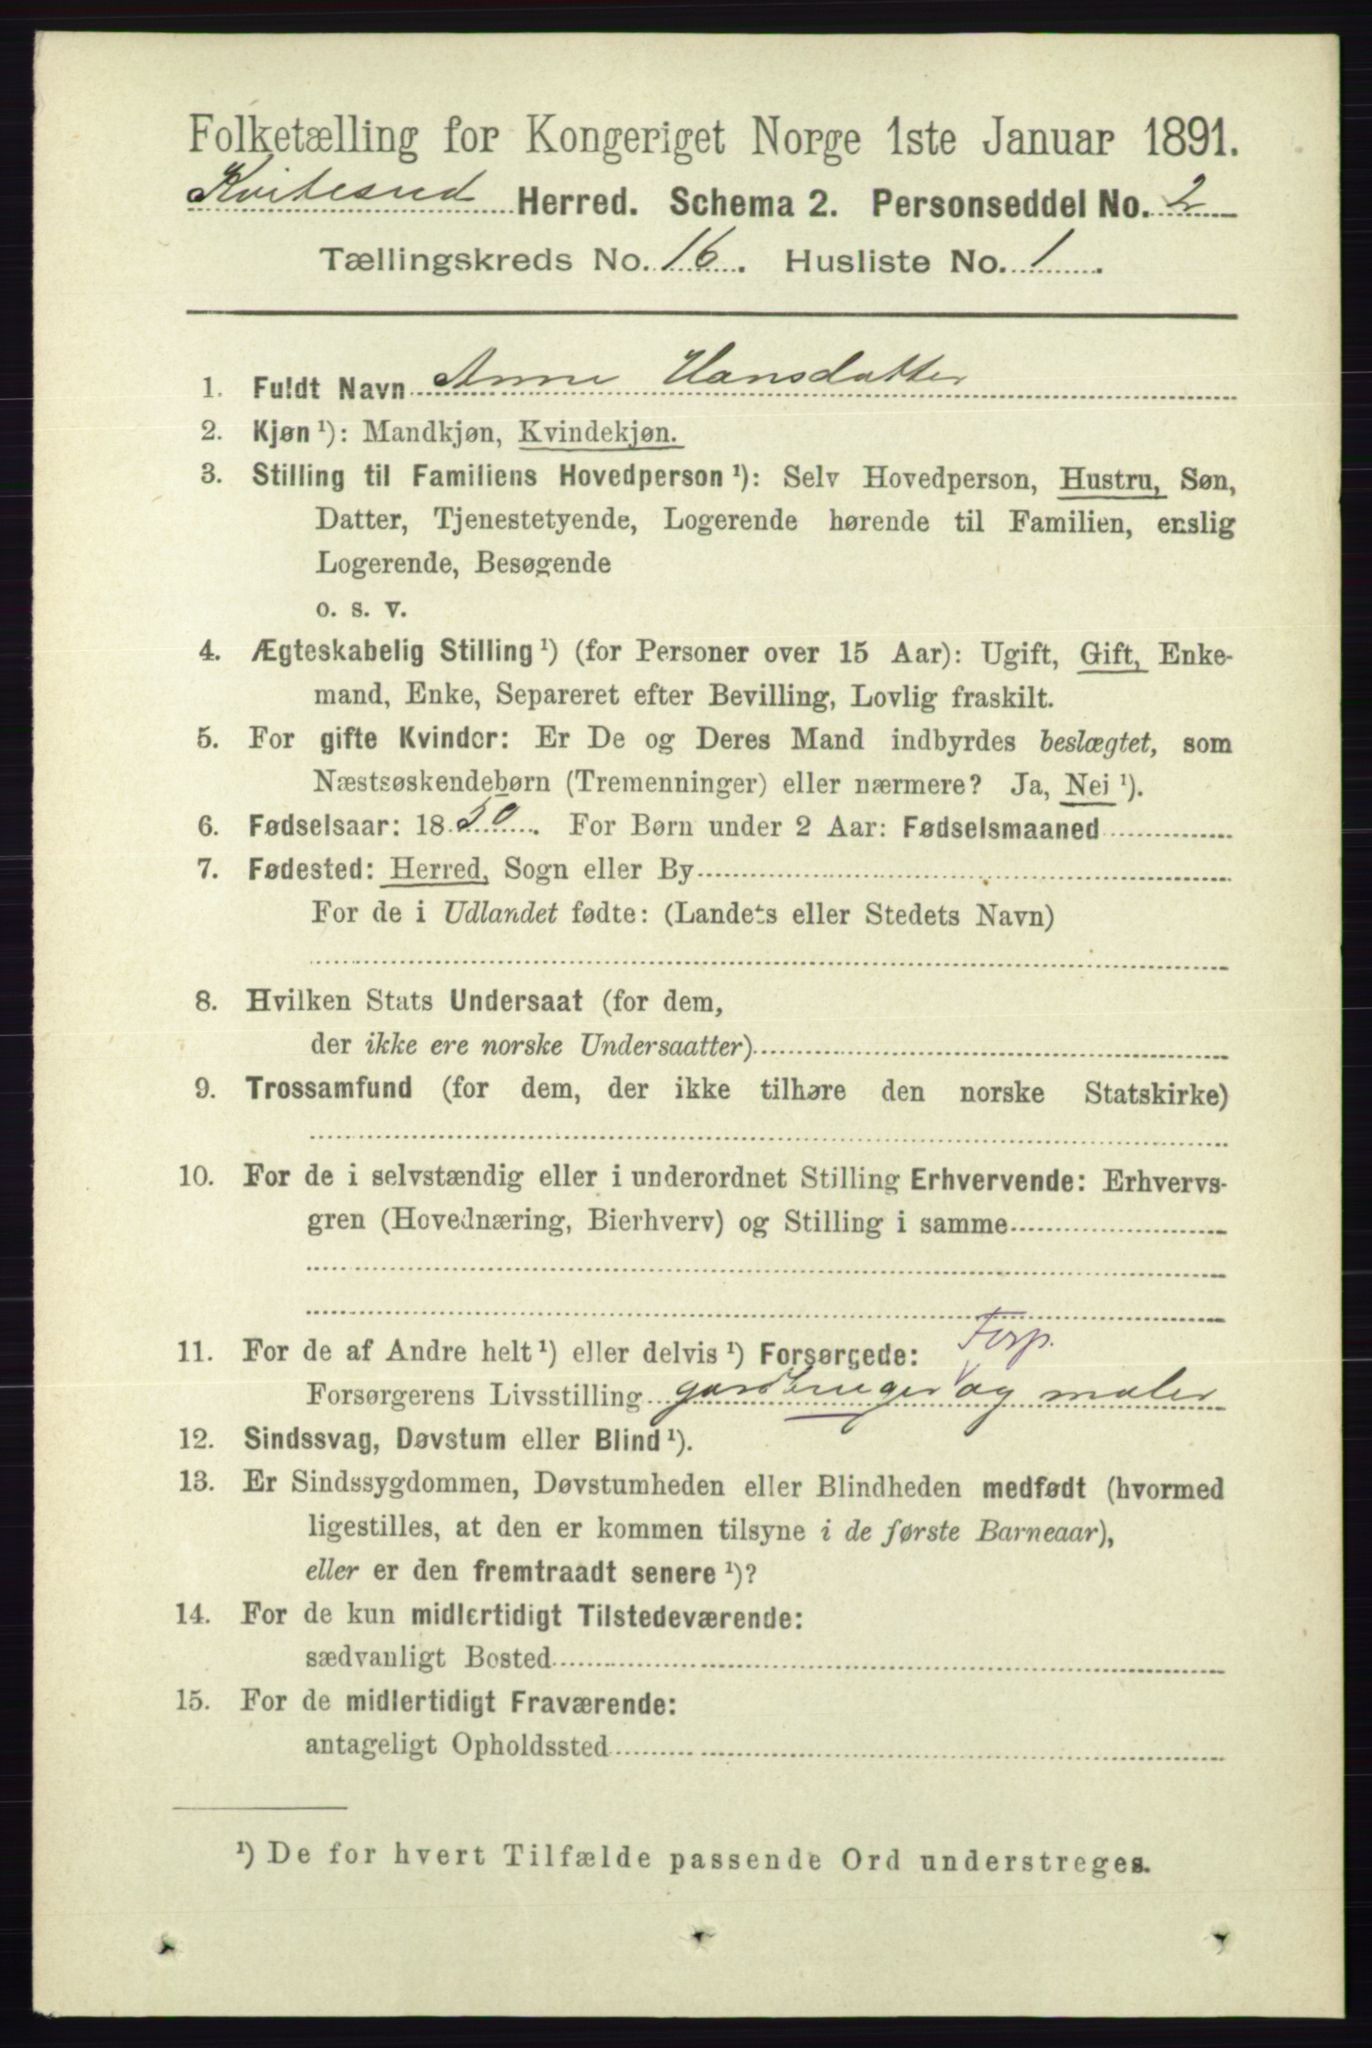 Folketælling for Kongeriget Norge 1ste Januar 1891.
Kvitesed Herred. Schema 2. Personseddel No. 2
Tællingskreds No. 16. Husliste No. 1.
1. Fuldt Navn Anne Hansdatter
2. Kjøn ¹): Mandkjøn, Kvindekjøn.
3. Stilling til Familiens Hovedperson ¹): Selv Hovedperson, Hustru, Søn,
Datter, Tjenestetyende, Logerende hørende til Familien, enslig
Logerende, Besøgende
o. s. v.
4. Ægteskabelig Stilling ¹) (for Personer over 15 Aar): Ugift, Gift, Enke-
mand, Enke, Separeret efter Bevilling, Lovlig fraskilt.
5. For gifte Kvinder: Er De og Deres Mand indbyrdes beslægtet, som
Næstsøskendebørn (Tremenninger) eller nærmere? Ja, Nei ¹).
6. Fødselsaar: 1850. For Børn under 2 Aar: Fødselsmaaned
7. Fødested: Herred, Sogn eller By
For de i Udlandet fødte: (Landets eller Stedets Navn)
8. Hvilken Stats Undersaat (for dem,
der ikke ere norske Undersaatter)
9. Trossamfund (for dem, der ikke tilhøre den norske Statskirke)
10. For de i selvstændig eller i underordnet Stilling Erhvervende: Erhvervs-
gren (Hovednæring, Bierhverv) og Stilling i samme
Forp.
11. For de af Andre helt ¹) eller delvis ¹) Forsørgede:
Forsørgerens Livsstilling gardbruger og maler
12. Sindssvag, Døvstum eller Blind ¹).
13. Er Sindssygdommen, Døvstumheden eller Blindheden medfødt (hvormed
ligestilles, at den er kommen tilsyne i de første Barneaar),
eller er den fremtraadt senere ¹)?
14. For de kun midlertidigt Tilstedeværende:
sædvanligt Bosted
15. For de midlertidigt Fraværende:
antageligt Opholdssted
¹) De for hvert Tilfælde passende Ord understreges.